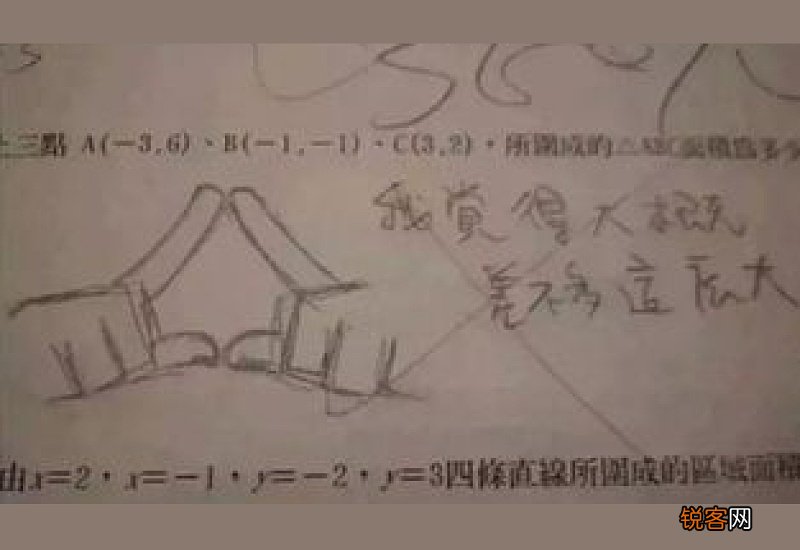 三點 A(-3,6)、B(-1,-1)、C(3,2)，所圍成的△ABC面積為多少
我覺得大概
差不多這麼大
由x=2，x=-1，y=-2，y=3四條直線所圍成的區域面積
锐客网